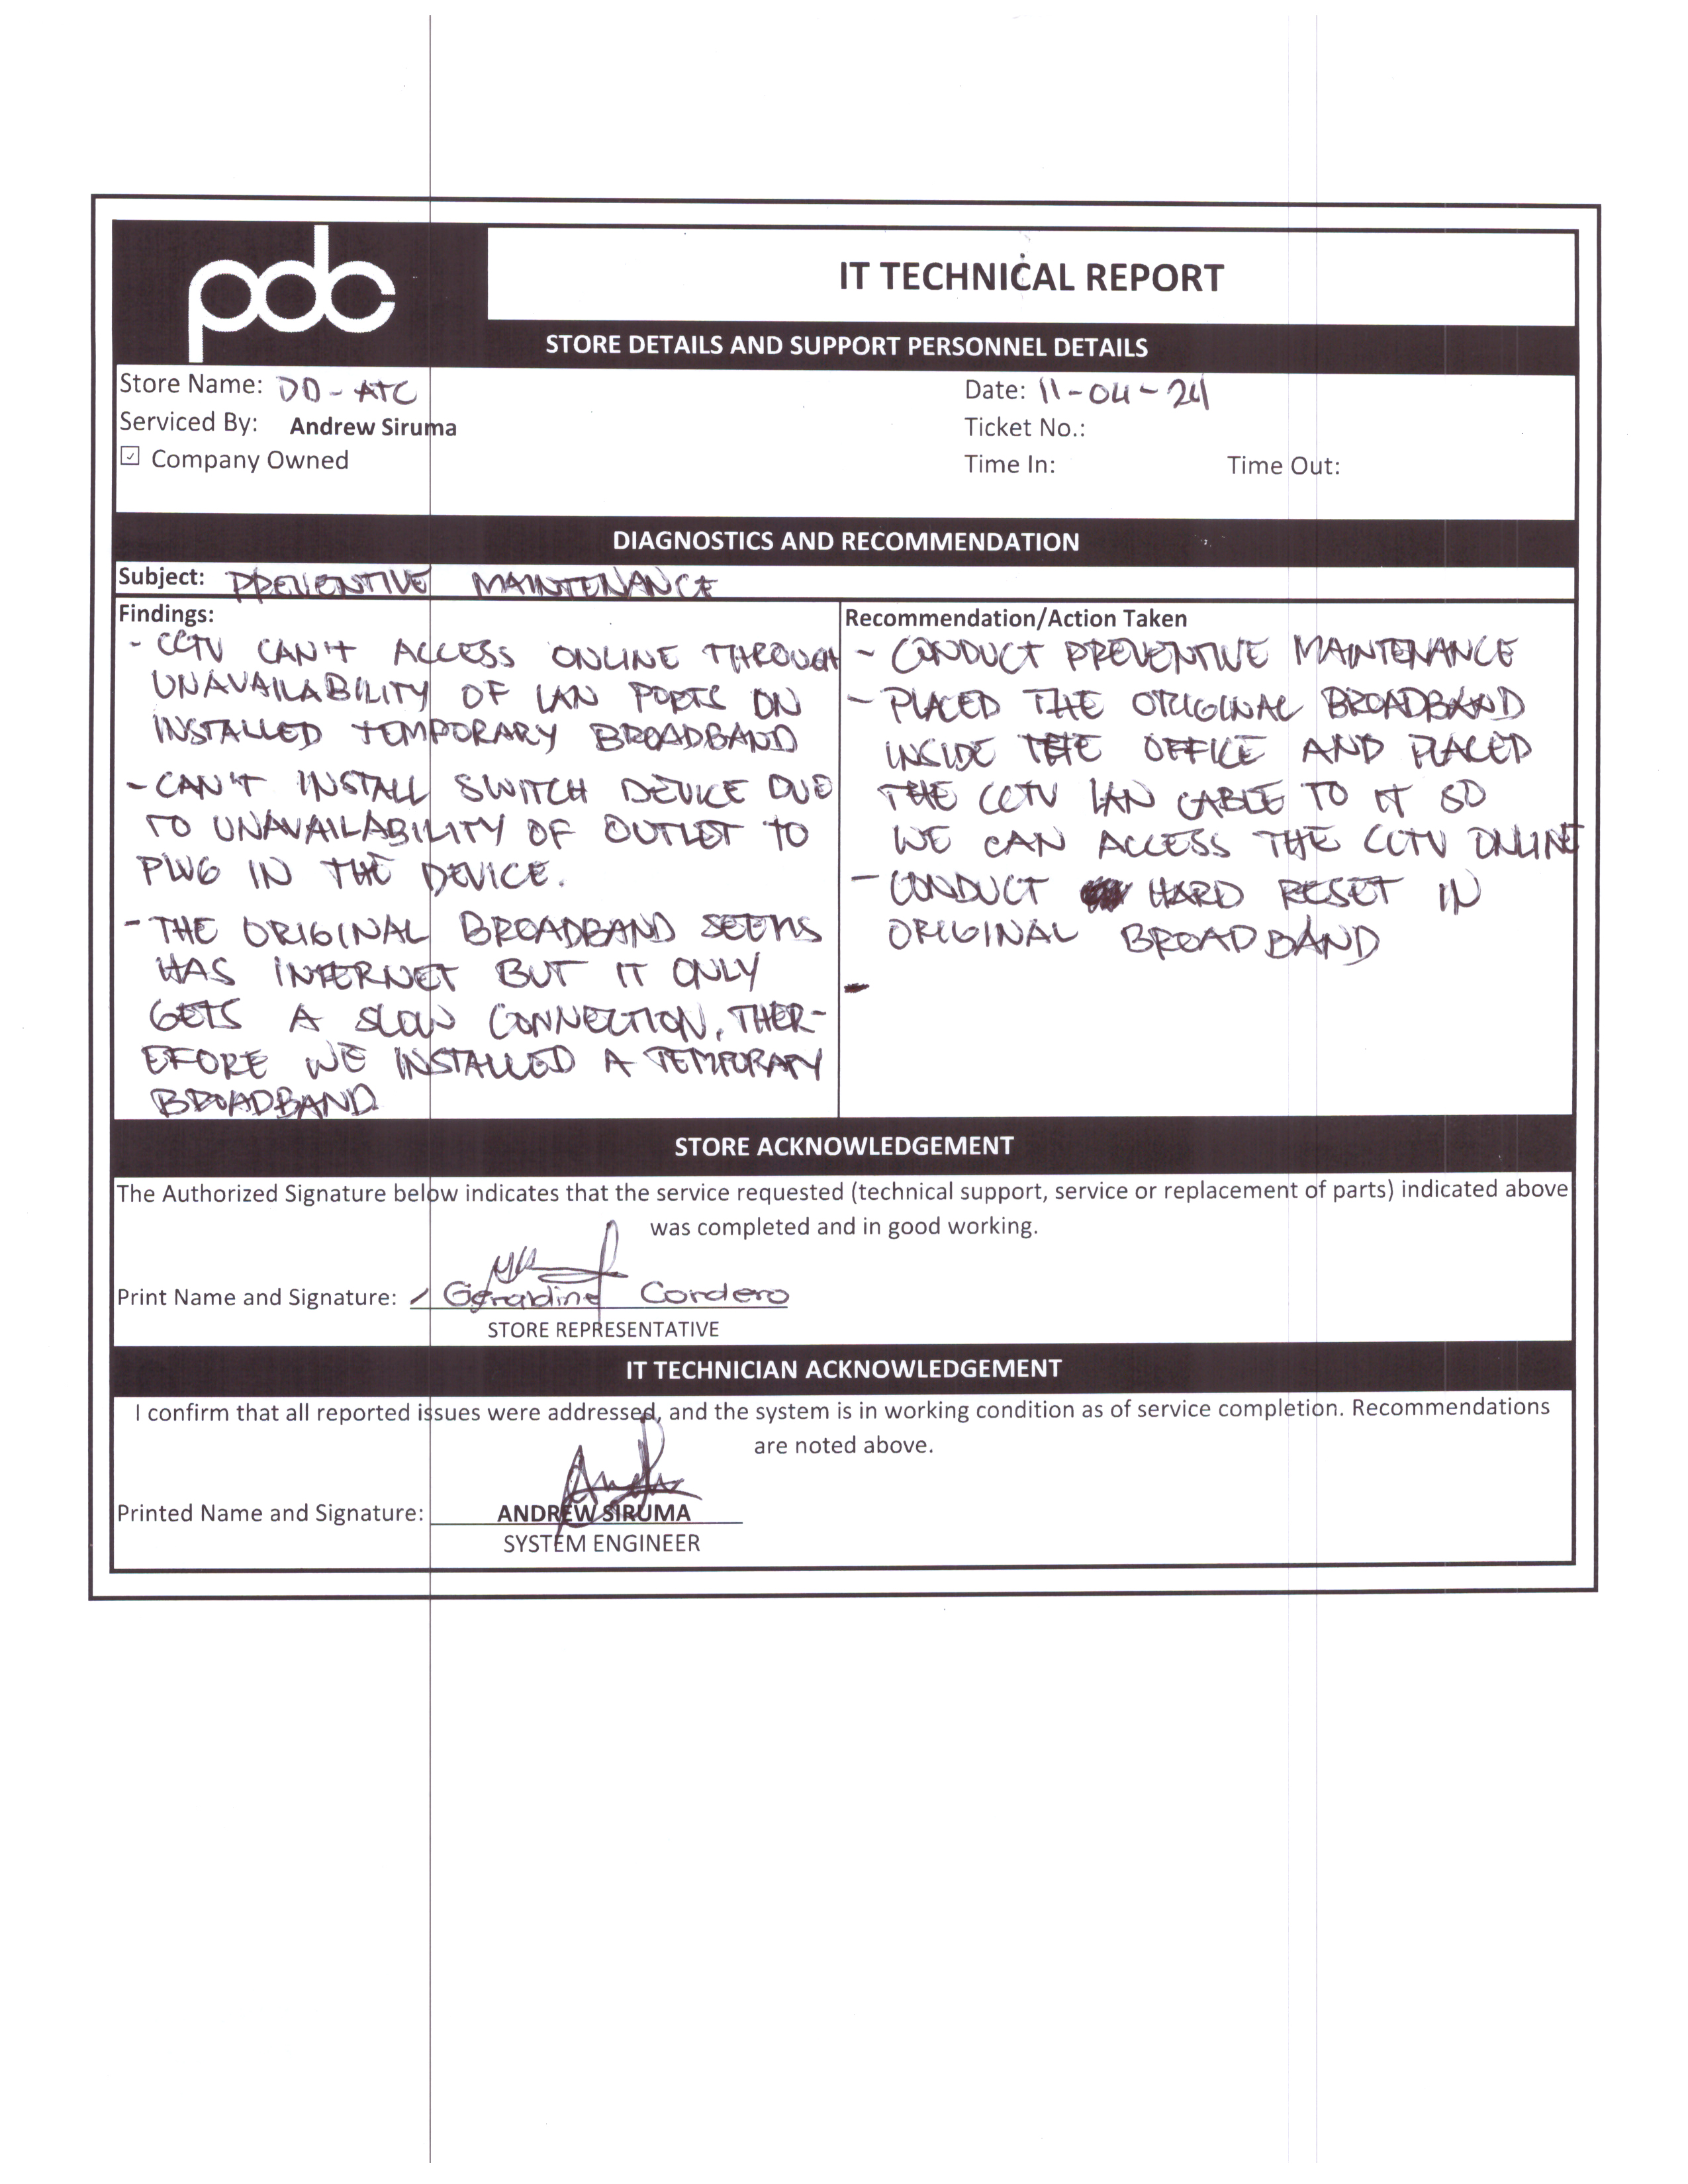 pdc
IT TECHNICAL REPORT
STORE DETAILS AND SUPPORT PERSONNEL DETAILS
Store Name: DD - ATC
Date: 11-04-24
Serviced By: Andrew Siruma
Ticket No.:
☑ Company Owned
Time In: Time Out:
DIAGNOSTICS AND RECOMMENDATION
Subject: PREVENTIVE MAINTENANCE
Findings:
- CCTV CAN'T ACCESS ONLINE THROUGH
UNAVAILABILITY OF LAN PORTS ON
INSTALLED TEMPORARY BROADBAND
- CAN'T INSTALL SWITCH DEVICE DUE
TO UNAVAILABILITY OF OUTLET TO
PLUG IN THE DEVICE.
- THE ORIGINAL BROADBAND SEEMS
HAS INTERNET BUT IT ONLY
GETS A SLOW CONNECTION, THER-
EFORE WE INSTALLED A TEMPORARY
BROADBAND
Recommendation/Action Taken
- CONDUCT PREVENTIVE MAINTENANCE
- PLACED THE ORIGINAL BROADBAND
INSIDE THE OFFICE AND PLACED
THE CCTV LAN CABLE TO IT SO
WE CAN ACCESS THE CCTV ONLINE
- CONDUCT HARD RESET IN
ORIGINAL BROADBAND
-
STORE ACKNOWLEDGEMENT
The Authorized Signature below indicates that the service requested (technical support, service or replacement of parts) indicated above
was completed and in good working.
Print Name and Signature: Geraldine Cordero
STORE REPRESENTATIVE
IT TECHNICIAN ACKNOWLEDGEMENT
I confirm that all reported issues were addressed, and the system is in working condition as of service completion. Recommendations
are noted above.
Printed Name and Signature: ANDREW SIRUMA
SYSTEM ENGINEER